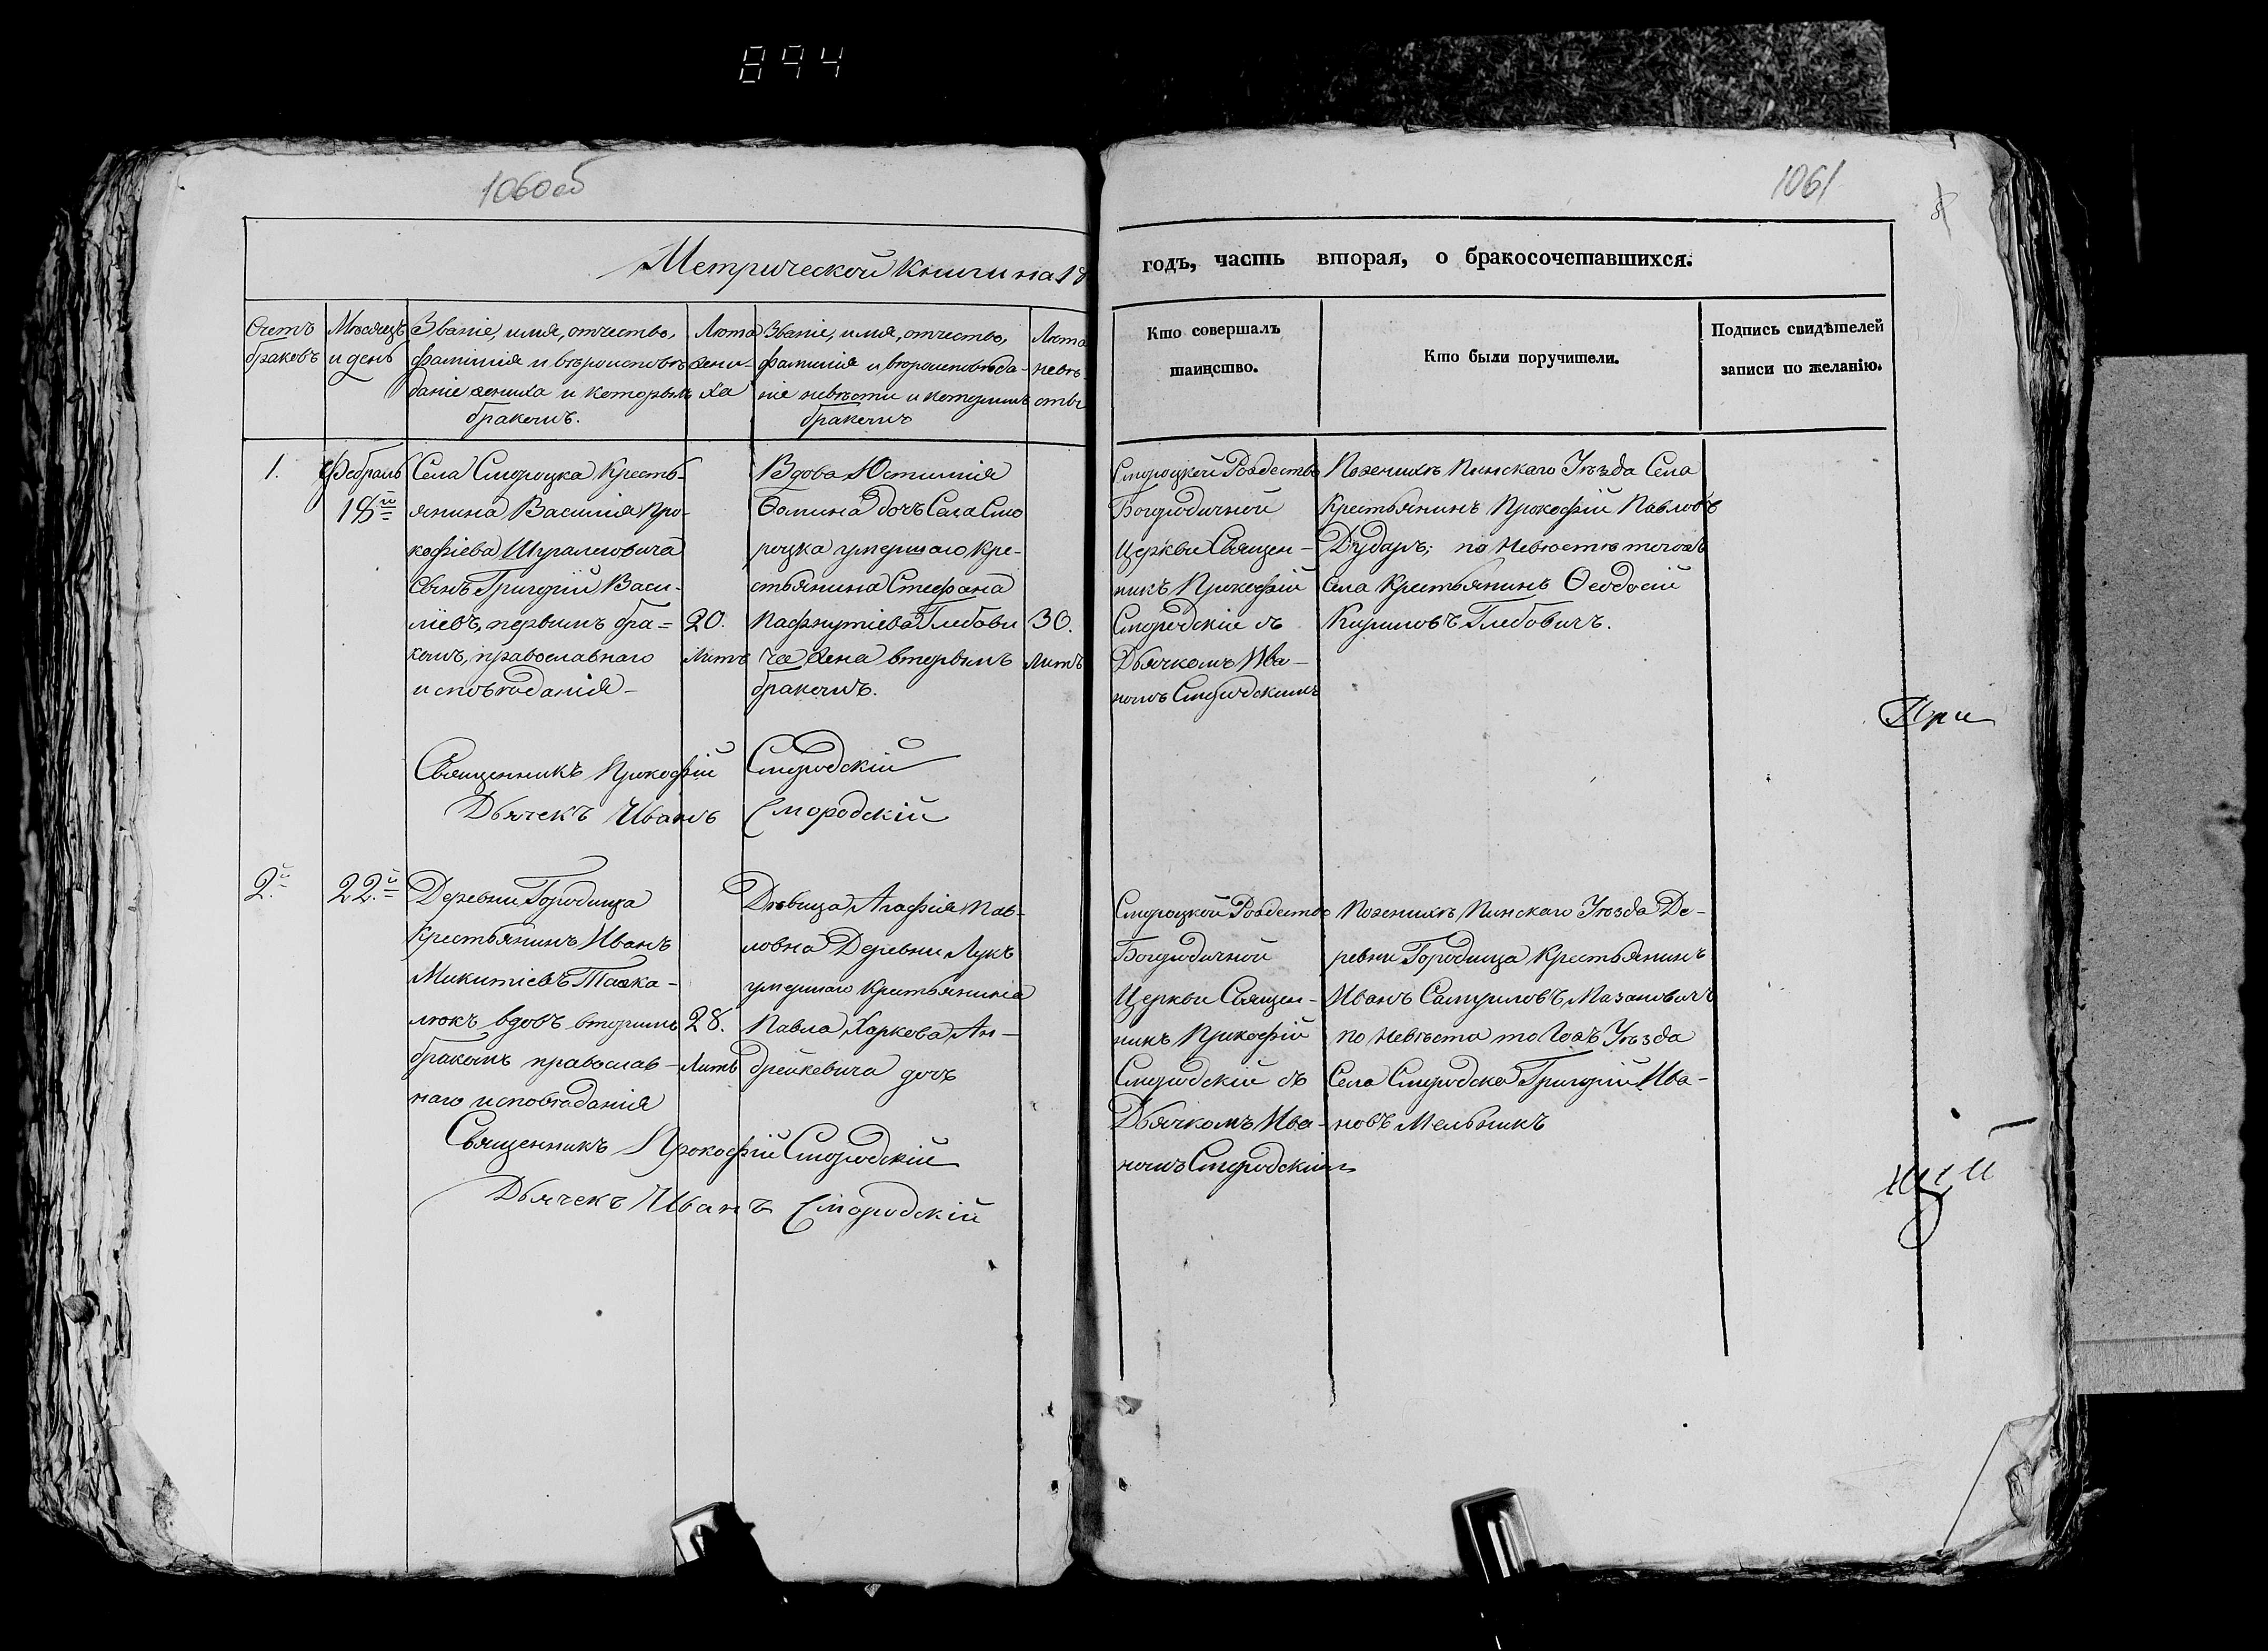 894
1060об
1061
Метрической Книги на 18
годъ, часть вторая, о бракосочетавшихся.
Счетъ браковъ
Мѣсяцъ и день
Званіе, имя, отчество,
фамилія и вѣроисповѣ
даніе жениха и которымъ
бракомъ.
Лѣта
жени-
ха
Званіе, имя, отчество,
фамилія и вѣроисповѣда-
ніе невѣсты и которымъ
бракомъ
Лѣта
невѣ-
сты
Кто совершалъ
таинство.
Кто были поручители.
Подпись свидѣтелей
записи по желанію.
1.
Февраль
18й
Села Смороцка Кресть-
янина Василія Про-
кофіева
сынъ Григорій Васи-
ліевъ, первымъ бра-
комъ, православнаго
исповѣданія
20.
лѣтъ
Вдова Юстинія
Фомина дочь Села Смо
роцка умершаго Кре-
стьянина Стефана
Пафнутіева Глебови
ча жена вторымъ
бракомъ.
30.
лѣтъ
Смороцкой Рождество
Богородичной
Церкви Священ-
никъ Прокофій
Смородскій съ
Дьячкомъ Ива-
номъ Смородскимъ
По женихѣ Пинскаго Уѣзда Села
Крестьянинъ Прокофій Павловъ
Дударъ; по Невѣстѣ тогожъ
села Крестьянинъ Ѳеодосій
Кириловъ Глебовичъ.
При
Священникъ Прокофій Смородскій
Дьячекъ Иванъ Смородскій
2й
22.й
Деревни Городища
Крестьянинъ Иванъ
Микитіевъ
люкъ вдовъ вторымъ
бракомъ православ-
наго исповѣданія
28.
лѣтъ
Дѣвица Агафія Пав-
ловна Деревни Лукъ
умершаго Крестьянина
Павла Харкова Ан-
дрейкевича дочь
Смороцкой Рождество
Богородичной
Церкви Священ-
никъ Прокофій
Смородскій съ
Дьячкомъ Ива-
номъ Смородскимъ
По женихѣ Пинскаго Уѣзда Де-
ревни Городища Крестьянинъ
Иванъ Самуиловъ Мазановичъ
по Невѣстѣ тогожъ Уѣзда
Села Смородска Григорій Ива-
новъ Мельникъ
Священникъ Прокофій Смородскій
Дьячекъ Иванъ Смородскій